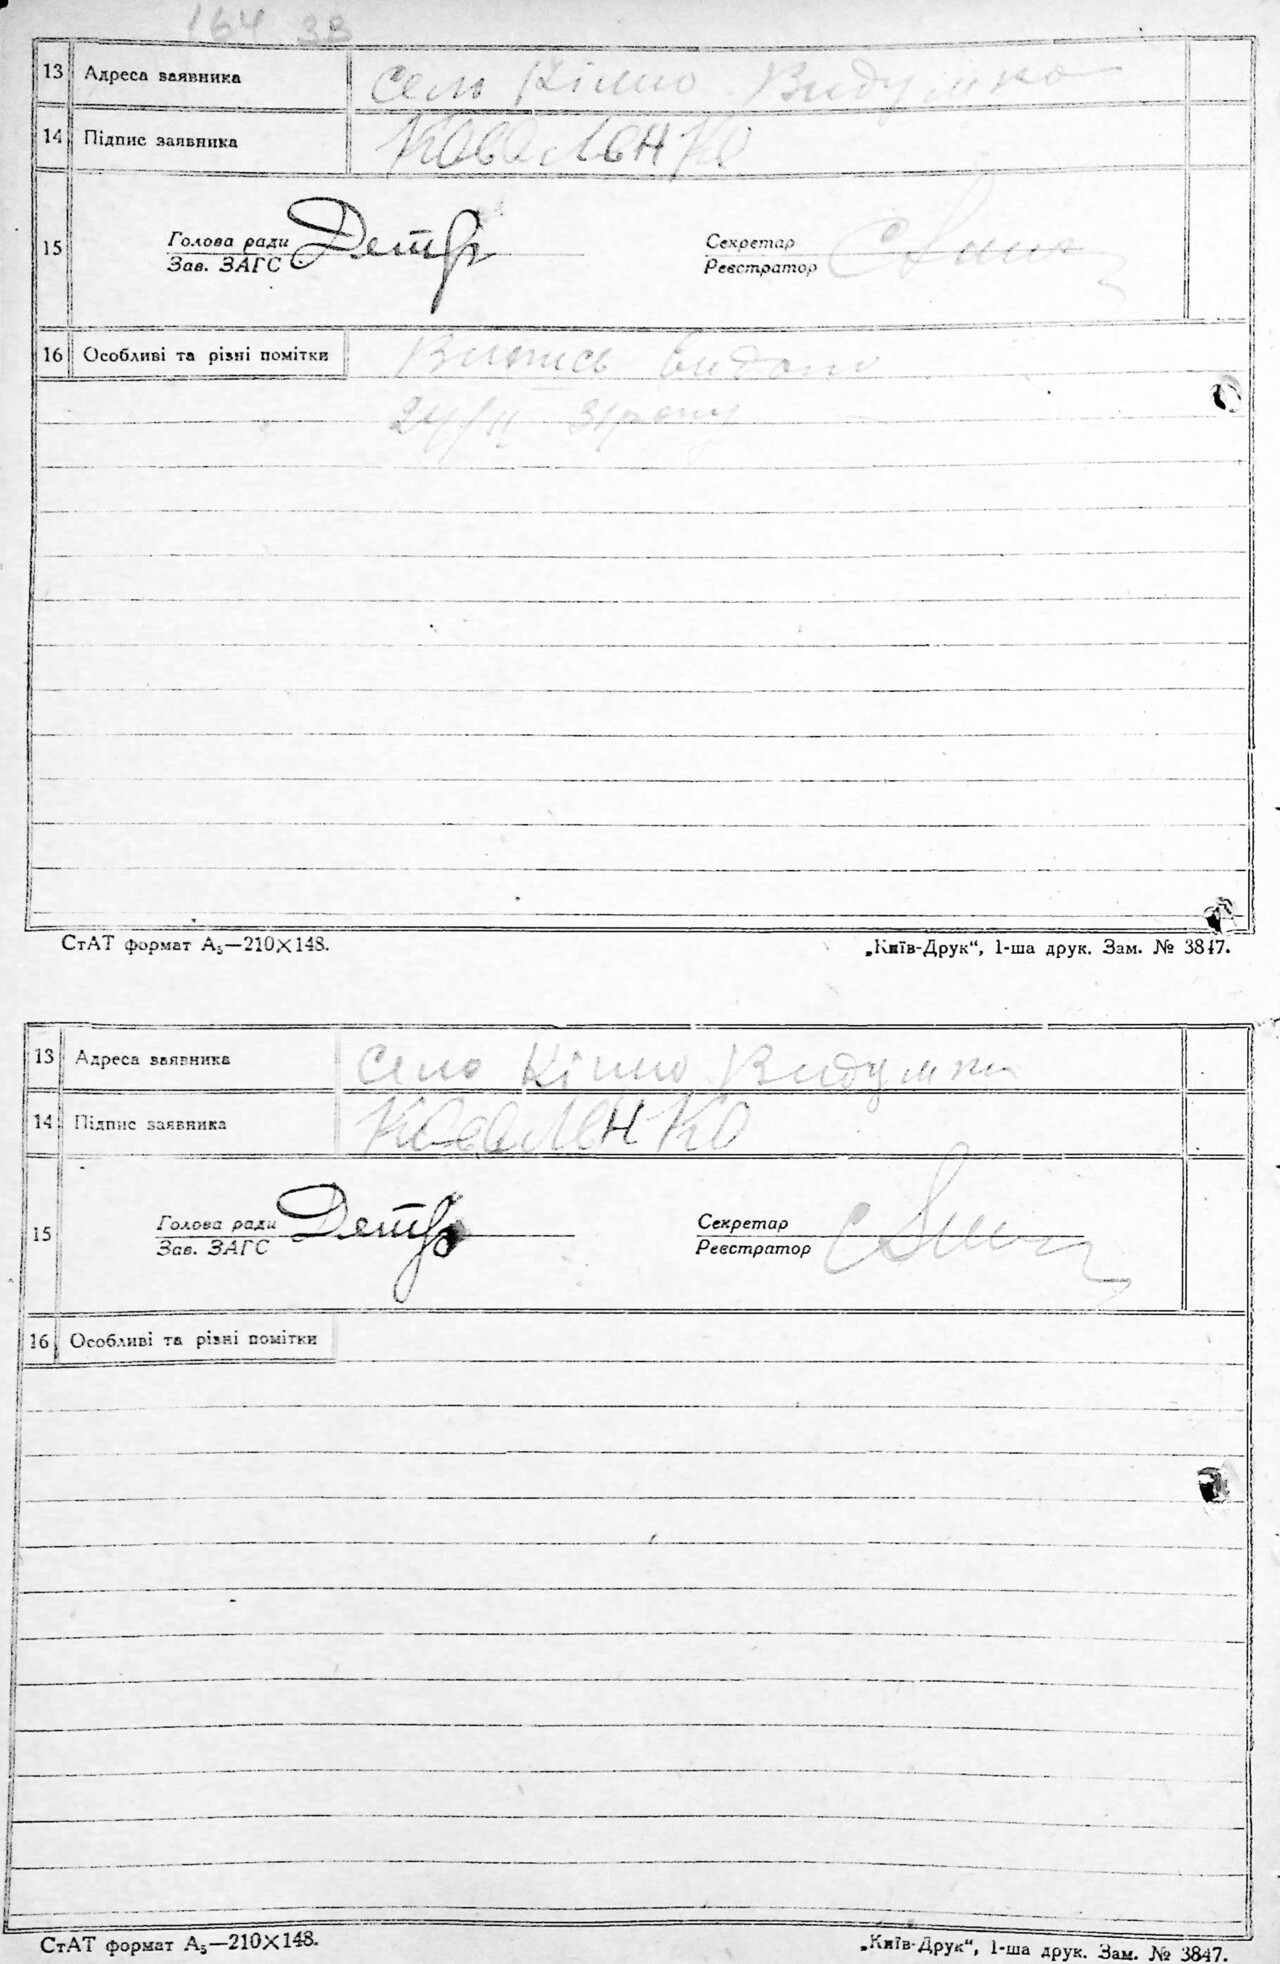 164 33
13 Адреса заявника Село Кішно Видумка
14 Підпис заявника Коваленко
15 Голова ради Секретар
Зав. ЗАГС Реєстратор
16 Особливі та різні помітки Випись видано
24/II 31 року
СтАТ формат А₅—210×148. „Київ-Друк“, 1-ша друк. Зам. № 3847.
13 Адреса заявника Село Кішно Видумка
14 Підпис заявника Коваленко
15 Голова ради Секретар
Зав. ЗАГС Реєстратор
16 Особливі та різні помітки
СтАТ формат А₅—210×148. „Київ-Друк“, 1-ша друк. Зам. № 3847.